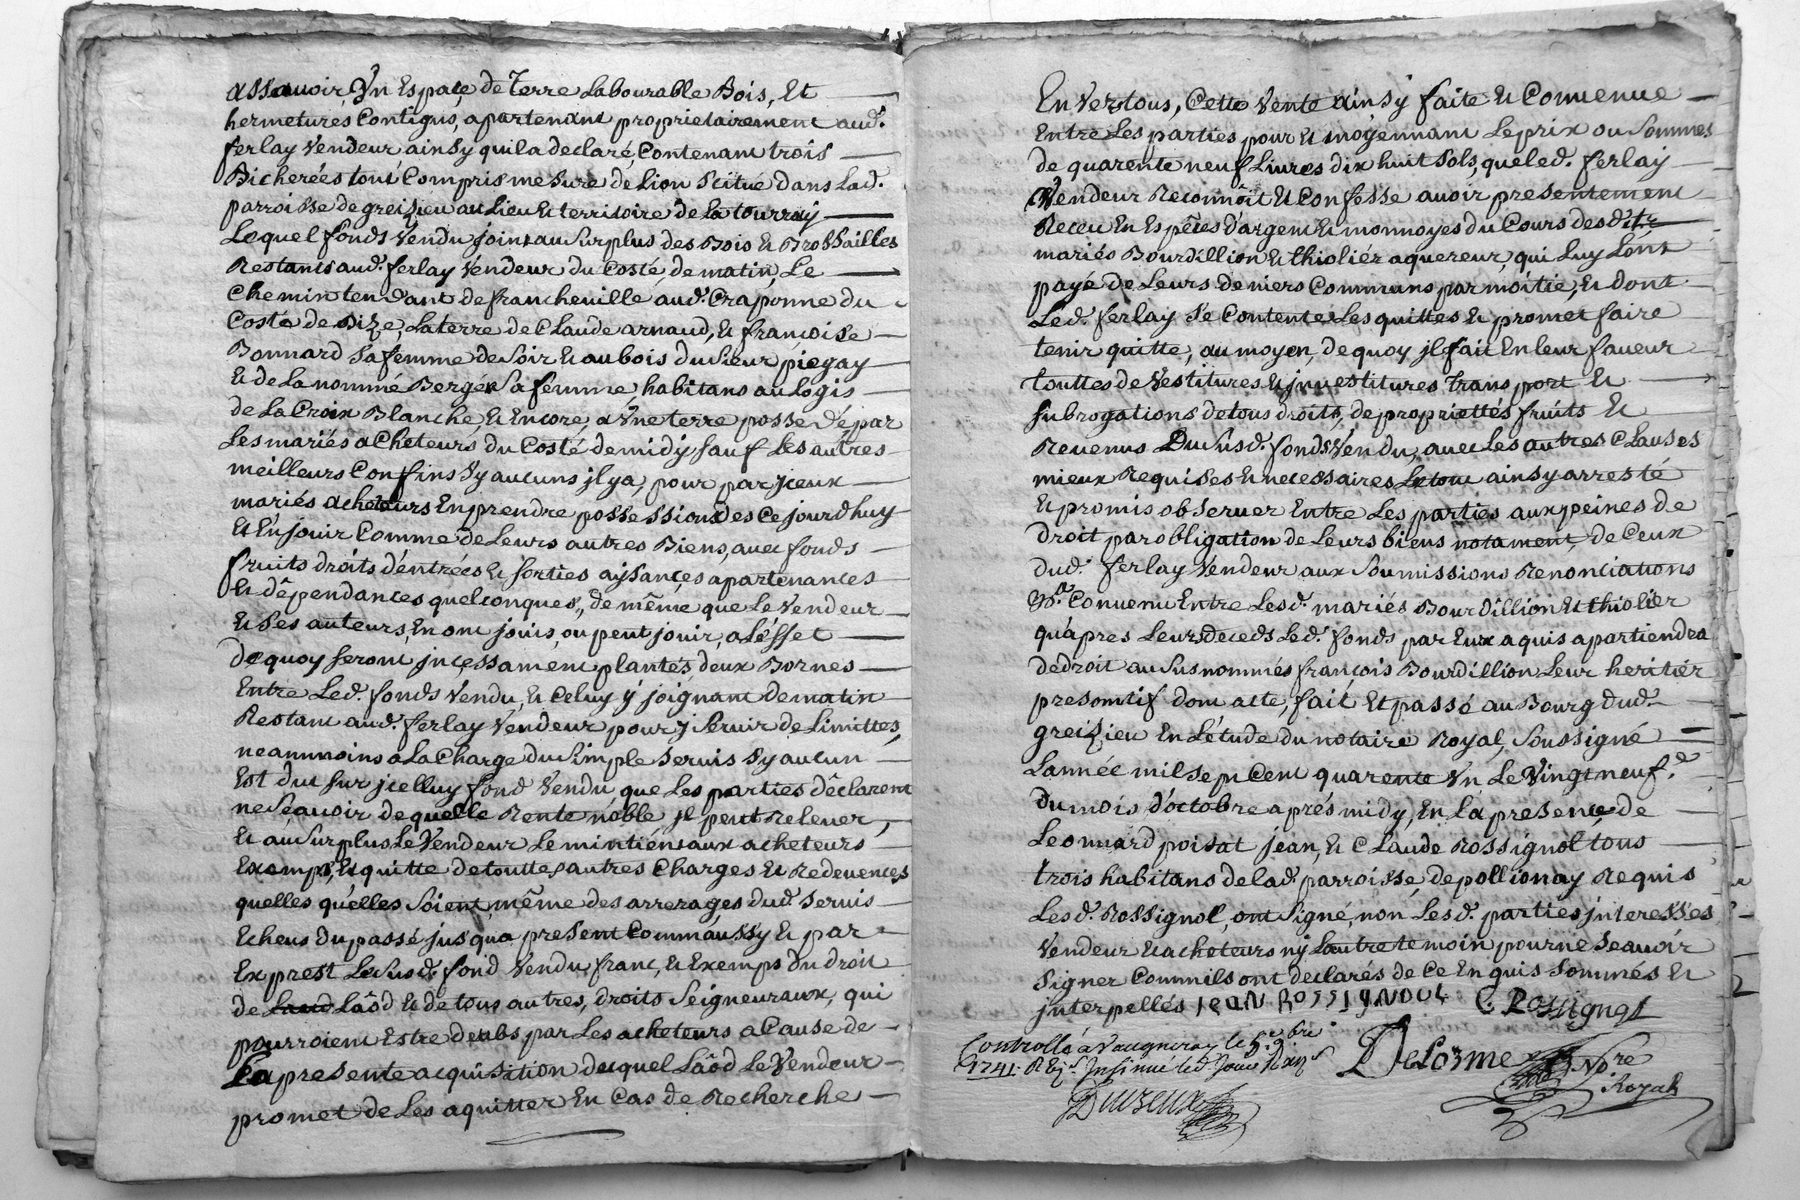 assauoir Vn Espace de Terre Labourable Bois, Et
hermetures Contigus, apartenant proprietairement aud.
ferlay Vendeur ainsy quil a declaré Contenant trois
Bicherées tout Compris mesure de Lion Scitué dans Lad.
parroisse de greizieu au Lieu et territoire de la tourray
Lequel fonds Vendu joint au Surplus des Bois et Brossailles
Restants aud. ferlay Vendeur du Costé, de matin, Le
Chemin tendant de francheuille aud. Craponne du
Costé de Bize, La terre de Claude arnaud, et francoise
Bonnard Sa femme de Soir et au bois du Sieur piegay
et de La nommé Berger Sa femme, habitans au Logis
de La Croix Blanche, et Encore, a Vne terre possedée par
Les mariés acheteurs du Costé de midy, sauf Les autres
meilleurs Confins Sy aucuns jl ya, pour par jceux
mariés acheteurs En prendre possession des Ce jourdhuy
et En jouir Comme de Leurs autres Biens, auec fonds
fruits droits d'entrées et Sorties aysances apartenances
et dépendances quelconques, de même que Le Vendeur
et Ses auteurs, En ont jouis, ou peut jouir, a L'effet
de quoy seront jncessament plantés, deux Bornes
Entre Led. fonds Vendu, et Celuy y joignant de matin
Restant aud. ferlay Vendeur pour y Seruir de Limittes,
neanmoins a La Charge du Simple Seruis Sy aucun
Est dut sur jcelluy fond Vendu que Les parties déclarent
ne Scauoir de quelle Rente noble jl peut Releuer,
et au Surplus Le Vendeur Le mintient aux acheteurs
Exempt, et quitte de touttes autres Charges et Redeuences
quelles quelles Soient, même des arrerages dud. Seruis
Echeus du passé jusqua present Comm'aussy et par
Exprest Le Susd. fond Vendu, franc, et Exempt du droit
de Laod Laôd et de tous autres, droits Seigneuraux, qui
pourroient Estre deubs par Les acheteurs a Cause de
La presente acquisition duquel Laôd Le Vendeur
promet de Les aquitter En Cas de Recherche
En Vers tous, Cette Vente ainsy faite et Conuenue
Entre Les parties pour et moyennant Le prix ou Sommes
de quarente neuf Liures dix huit Sols, que led. ferlay
Vendeur Reconnoit et Confesse auoir presentement
Receu En Espêces d'argent et monnoyes du Cours desdits
mariés Bourdillion et thioliér aquereur, qui Luy Lont
payé de Leurs deniers Communs par moitie, et dont
Led. ferlay Se Contente Les quittes et promet faire
tenir quitte, au moyen, de quoy jl fait En leur faueur
touttes de Vestitures et jnuestitures transport et
subrogations de tous droits, de propriettés fruits et
Reuenus Du Susd. fonds Vendu, auec Les autres Clauses
mieux Requises et necessaires Le tout ainsy arresté
et promis obseruer Entre Les parties aux peines de
droit par obligation de Leurs biens notament, de Ceux
dud. ferlay Vendeur aux Soumissions Renonciations
Conuenu Entre Lesd. mariés Bourdillion et thiolier
qu'apres Leurs deceds Led. fonds par Eux aquis apartiendra
de droit au Susnommés françois Bourdillion Leur heritier
presomtif dont acte, fait Et passé au Bourg dud.
greizieu En L'étude du notaire Royal, Soussigné
Lannée mil sept Cent quarente Vn Le Vingt neuf.e
Du mois d'octobre aprés midy, En la presence de
Leonnard poisat jean, et Claude Rossignol tous
trois habitans de lad. parroisse, de pollionay Requis
Lesd. Rossignol, ont Signé, non Lesd. parties jnteressés
Vendeur et acheteurs nÿ Lautre temoin pour ne Scauoir
Signer Comm'ils ont declarés de Ce En quis Sommés et
jnterpellés JEAN ROSSIGNOUL C. Rossignol
Controllé à Vaugneray le 5.e 9bre
1741. Insinué led. Jour
Delorme Nore
Royal